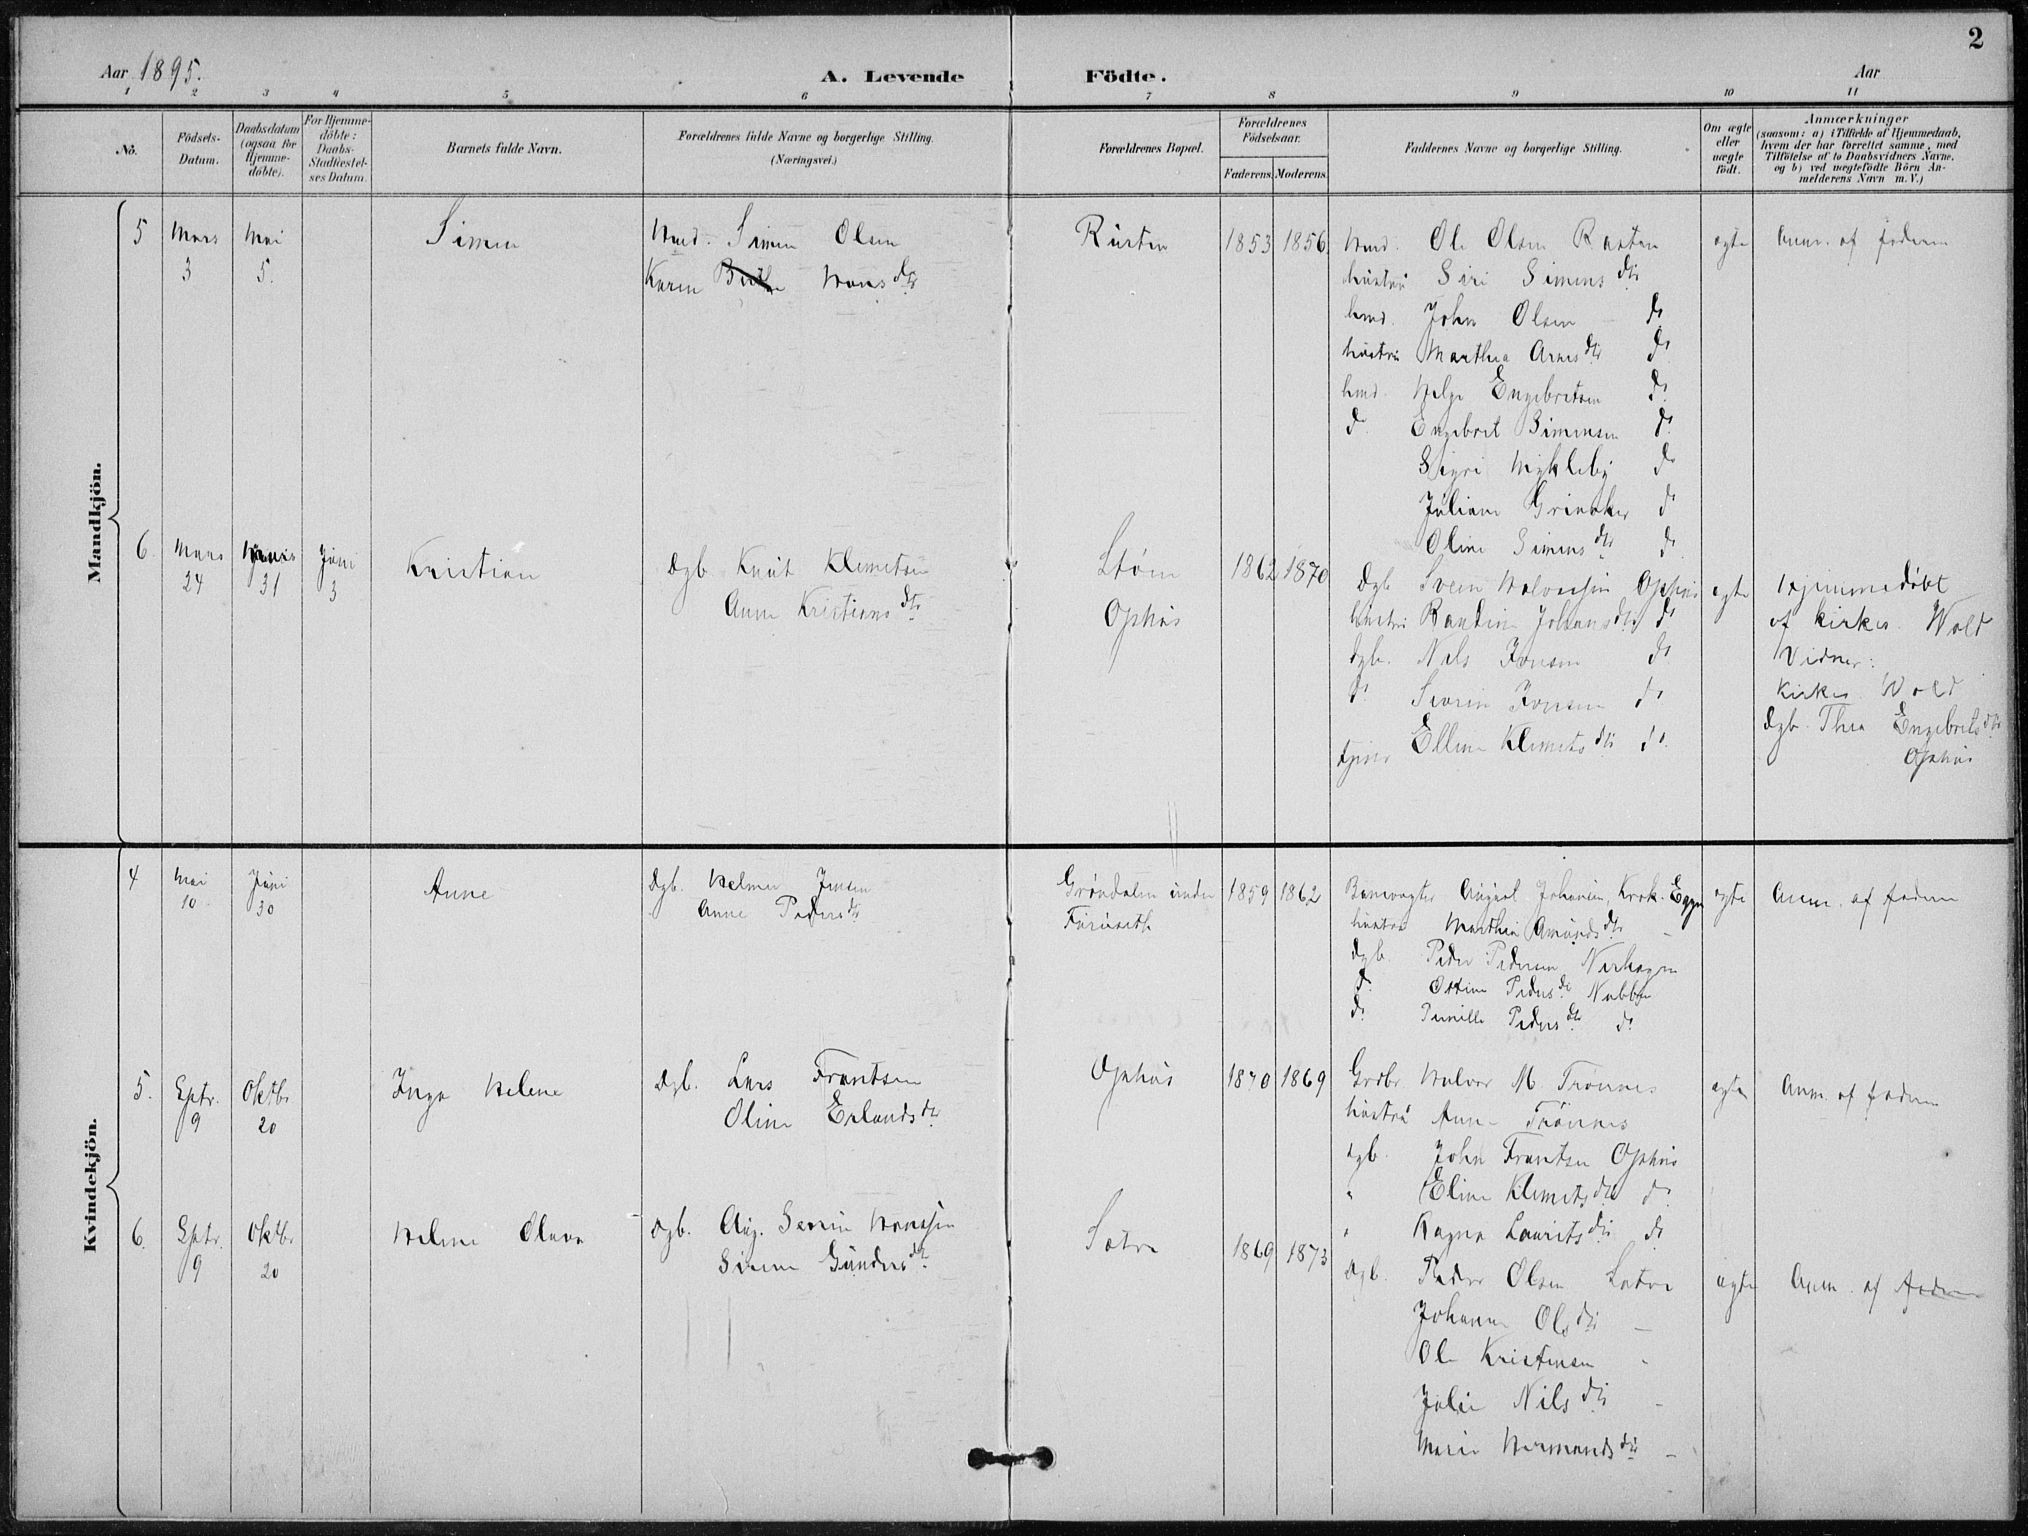 2
Aar 1895.
A. Levende Födte.
Aar
1 2 3 4 5 6 7 8 9 10 11
No.
Födsels-Datum.
Daabsdatum (ogsaa for Hjemme-döbte).
For Hjemme-döbte: Daabs-Stadfæstel-ses Datum.
Barnets fulde Navn.
Forældrenes fulde Navne og borgerlige Stilling.
(Næringsvei.)
Forældrenes Bopæl.
Forældrenes Födselsaar.
Faderens. Moderens.
Faddernes Navne og borgerlige Stilling.
Om ægte eller uægte födt.
Anmærkninger
(saasom: a) i Tilfælde af Hjemmedaab,
hvem der har forrettet samme, med
Tilföielse af to Daabsvidners Navne.
og b) ved uægtefödte Börn An-
melderens Navn m. V.)
Mandkjön.
5 Mars 3 Mai 5. Simen
Simen Olsen
Karen Hansdtr
Rusten 1853 1856
Ole Olsen Rusten
hustru Siri Simensdtr
John Olsen do
hustru Marthea Arnesdtr do
Helge Engebretsen do
do Engebret Simensen do
Sigri Mykleby do
Juliane Grinaker do
Oline Simensdtr do
ægte Anm. af faderen
6. Mars 24 31 Juni 3 Kristian
Dgb. Knut Klemetsen
Anne Kristiansdtr
Strøm
Ophus
1862 1870
Dgb. Svein Halvorsen Ophus
hustru Randine Johansdtr do
dgb. Nils Jonsen do
do Severin Jonsen do
Ellen Klemetsdtr do
ægte
Hjemmedøbt
af kirkes. Wold
Vidner:
Kirkes. Wold
Dgb. Thea Engebretsdtr
Ophus
Kvindekjön.
4 Mai 10 Juni 30 Anne
Dgb. Helmer Jensen
Anne Pedersdtr
Grøndalen under
Furuseth
1859 1862
Banevogter August Johansen, Krok. Eggen
hustru Marthea Amundsdtr -
dgb. Peder Pedersen
do Pedersdtr Nabben
do Pernille Pedersdtr do
ægte Anm. af faderen
5. Sptr. 9 Oktbr 20 Inga Helene
Dgb. Lars Frantsen
Oline Erlandsdtr
Ophus 1870 1869
Grdbr Halvor M. Trønnes
hustru Anne Trønnes
dgb. John Frantsen Ophus
" Eline Klemetsdtr do
" Ragna Lauritsdtr do
ægte Anm. af faderen
6. Sptr. 9 Oktbr 20 Helene Olava
Dgb. Aug. Severin Hanssen
Sirene Gundersdtr
Sætre 1869 1873
Dgb. Peder Olsen Sætre
Johanne Olsdtr -
Ole Kristensen -
Julie Nilsdtr -
Marie Hermandsdtr -
ægte Anm. af faderen